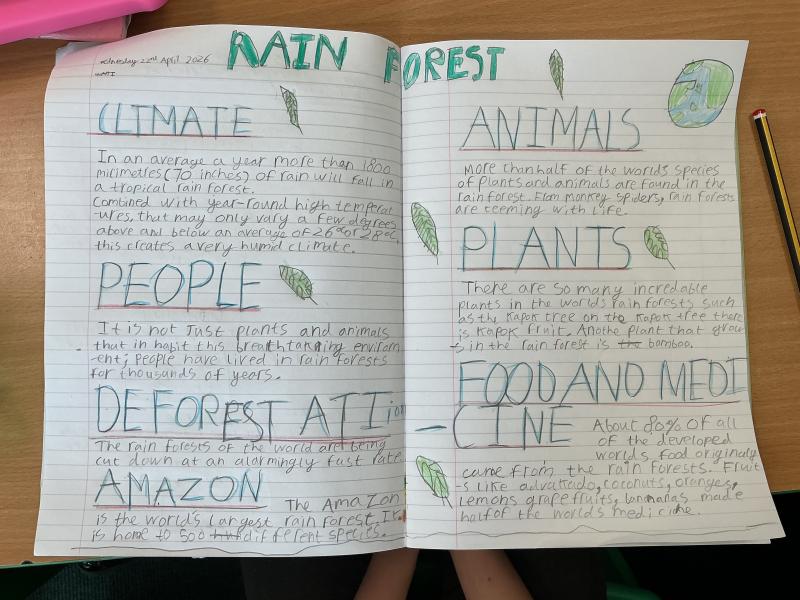 RAIN FOREST
Wednesday 22nd April 2026
CLIMATE
In an average a year more than 1800
milimetres (70 inches) of rain will fall in
a tropical rain forest.
Combined with year-round high temperat
-ures, that may only vary a few degrees
above and below an average of 26°c or 28°c,
this creates a very humid climate.
PEOPLE
It is not Just plants and animals
that in habit this breathtakning environm
-ent; People have lived in rain forests
for thousands of years.
DEFORESTATIion
The rain forests of the world are being
cut down at an alarmingly fast rate
AMAZON
The Amazon
is the world's largest rain forest. It
is home to 500 different species.
ANIMALS
More than half of the worlds species
of plants and animals are found in the
rain forest. From monkey spiders, rain forests
are teeming with life.
PLANTS
There are so many incredable
plants in the worlds rain forests such
as the Kapok tree on the Kapok tree there
is Kapok fruit. Anothe plant that grow
-s in the rain forest is the bamboo.
FOOD AND MEDI
-CINE
About 80% of all
of the developed
worlds food originaly
came from the rain forests. Fruit
-s like advacado, coconuts, oranges,
lemons grapefruits, bananas made
half of the worlds medicine.